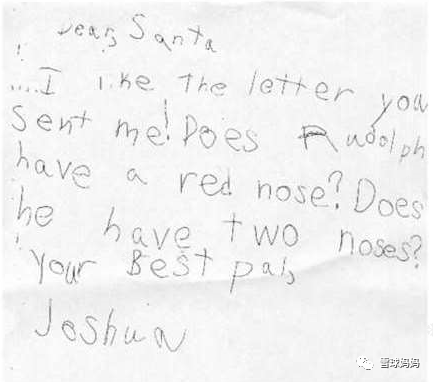 Dear, Santa
....I like the letter you
sent me! Does Rudolph
have a red nose? Does
he have two noses?
Your Best pal,
Joshua
雪球妈妈